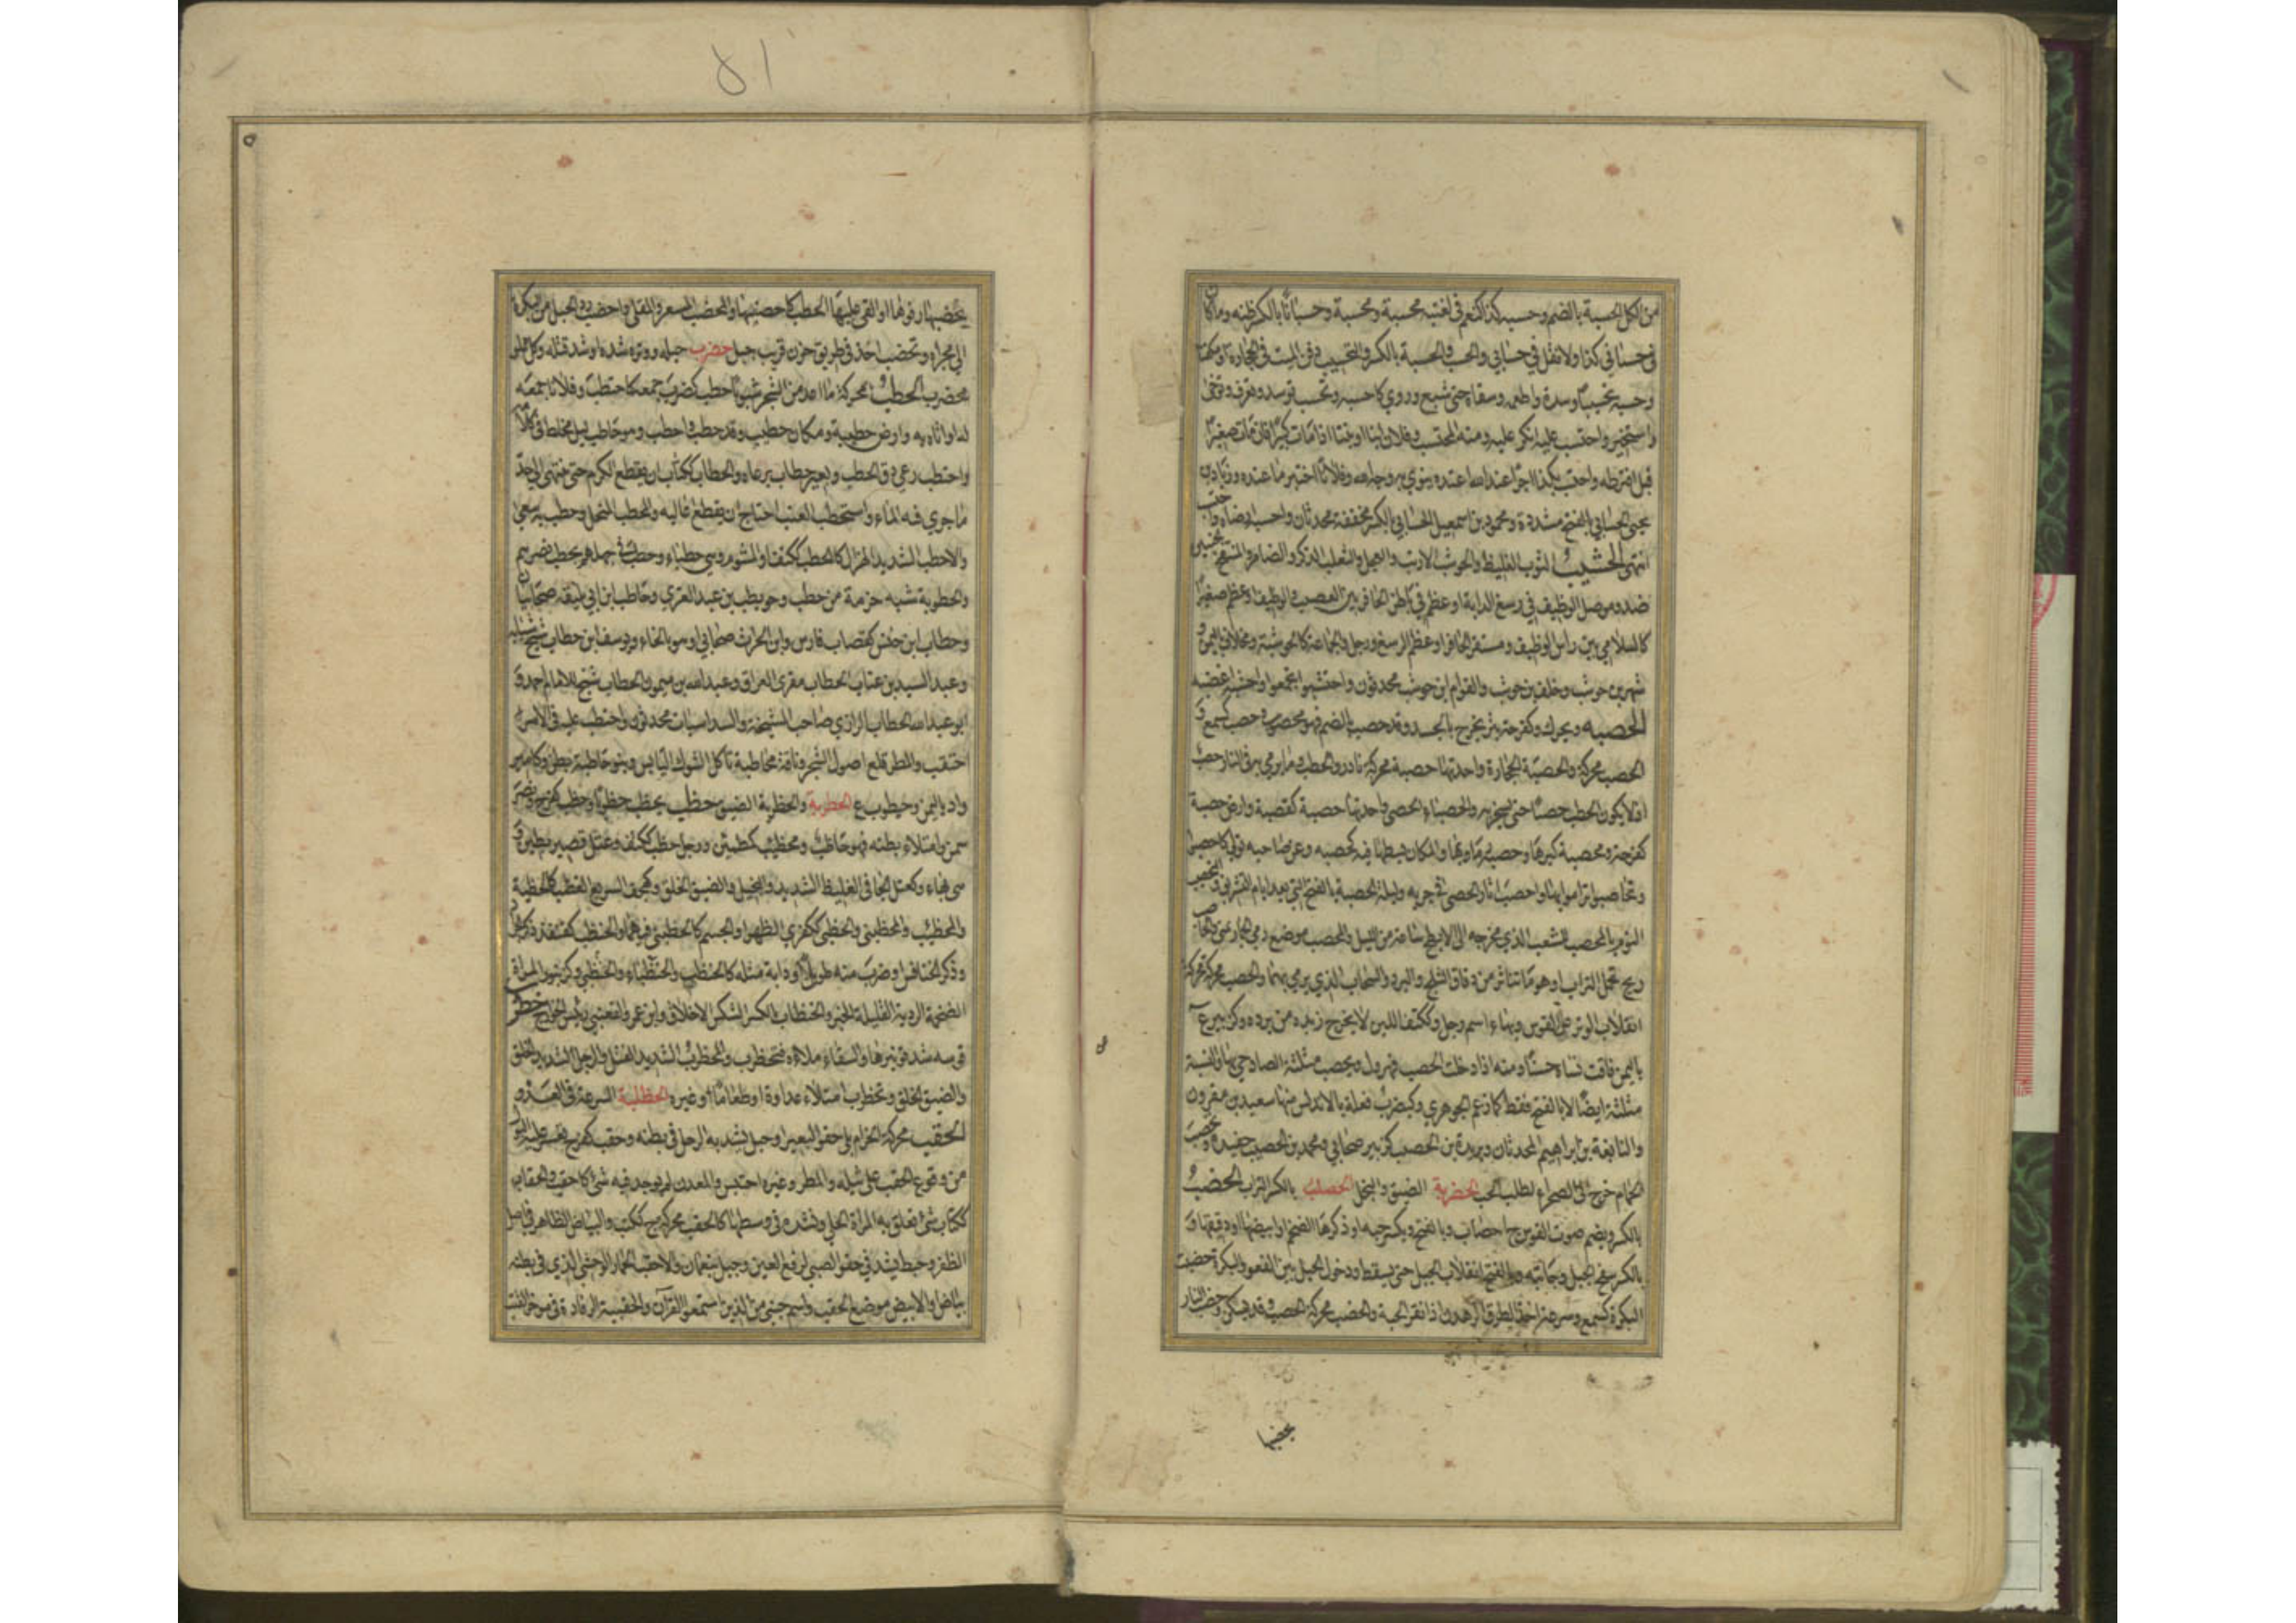 من الكل الحسبة بالضم وحسبه كذا كنعم في لغتيه محسبة ومحسبة وحسبانا بالكسر ظنه وما كان
في حسباني كذا ولا تقل في حسابي والحسب والحسبة بالكسر والتحسيب دفن الميت في الحجارة او مكفنا
وحسبه تحسيبا وسده واطعمه وسقاه حتى شبع وروي كاحسبه وتحسب توسد وتعرف وتوخى
واستخبر واحتسب عليه انكر عليه ومنه المحتسب وفلان ابنا او بنتا اذا مات كبيرا فان مات صغيرا
قيل افترطه واحتسب بكذا اجرا عند الله اعتده ينوي به وجه الله وفلانا اختبر ما عنده وزياد بن
يحيى الحسابي بالفتح مشددة ومحمود بن اسمعيل الحسابي بالكسر مخففة محدثان واحسبه ارضاه واحتسب
انتهى الحشيب الثوب الغليظ والحوشب الارنب والعجل والثعلب الذكر والضامر والمنتفخ الجنبين
ضد وموصل الوظيف في رسغ الدابة او عظم في باطن الحافر بين العصب والوظيف او عظم صغير
كالسلامى بين راس الوظيف ومستقر الحافر او عظم الرسغ ورجل والجماعة كالحوشبة ومخلاف باليمن و
شهر بن حوشب وخلف بن حوشب والعوام ابن حوشب محدثون واحتشبوا تجمعوا واحشبه اغضبه
الحصبة ويحرك وكفرحة بثر يخرج بالجسد وقد حصب بالضم فهو محصوب وحصب كسمع و
الحصب محركة والحصبة الحجارة واحدتها حصبة محركة نادر والحطب وما يرمى به في النار حصب
او لا يكون الحطب حصبا حتى يسجر به والحصباء الحصى واحدتها حصبة كقصبة وارض حصبة
كفرحة ومحصبة كثيرتها وحصبه رماه بها والمكان بسطها فيه كحصبه وعن صاحبه تولى كاحصب
وتحاصبوا تراموا بها واحصب اثار الحصى في جريه وليلة الحصبة بالفتح التي بعد ايام التشريق والتحصيب
النوم بالمحصب الشعب الذي مخرجه الى الابطح ساعة من الليل والمحصب موضع رمي الجمار بمنى والحاصب
ريح تحمل التراب او هو ما تناثر من دقاق الثلج والبرد والسحاب الذي يرمي بهما والحصب محركة
انقلاب الوتر عن القوس وبهاء اسم رجل وككتف اللبن لا يخرج زبده من برده وكزبير ع
باليمن فاقت نساؤه حسنا ومنه اذا دخلت الحصيب فهرول ويحصب مثلثة الصاد حي بها والنسبة
مثلثة ايضا لا بالفتح فقط كما زعم الجوهري وكيضرب قلعة بالاندلس منها سعيد بن مقرون
والنابغة بن ابراهيم المحدثان وبريدة بن الحصيب كزبير صحابي ومحمد بن الحصيب حفيده وتحصب
الحمام خرج الى الصحراء لطلب الحب الحصربة الضيق والبخل الحصلب بالكسر التراب الحضب
بالكسر ويضم صوت القوس ج احضاب وبالفتح ويكسر حية او ذكرها الضخم او ابيضها او دقيقها و
بالكسر سفح الجبل وجانبه وبالفتح انقلاب الحبل حتى يسقط ودخول الحبل بين القعو والبكرة حضبت
البكرة كسمع وسرعة اخذ الطرق الرهدن اذا نقر الحبة والحضب محركة الحصب وقد يسكن وحضب النار
يحضبها
يحضبها رفعها او القى عليها الحطب كاحضبها والمحضب المسعر والمقلى واحضب رد الحبل من البكرة
الى مجراه وتحضب اخذ في طريق حزن قريب جبل حضرب حبله ووتره شده او شد فتله وكل مملو
محضرب الحطب محركة ما اعد من الشجر شبوبا حطب كضرب جمعه كاحتطب وفلانا جمعه
له او اتاه به وارض حطيبة ومكان حطيب وقد حطب واحطب وهو حاطب ليل مخلط في كلامه
واحتطب رعى دق الحطب وبعير حطاب يرعاه والحطاب ككتاب ان يقطع الكرم حتى ينتهى الى حد
ما جرى فيه الماء واستحطب العنب احتاج ان يقطع اعاليه والمحطب المنجل وحطب به سعى
والاحطب الشديد الهزال كالحطب ككتف او المشوم وهي حطباء وحطب في حبلهم يحطب نصرهم
والحطوبة شبه حزمة من حطب وحويطب بن عبد العزى وحاطب ابن ابي بلتعة صحابيان
وحطاب ابن حنش كقصاب فارس وابن الحرث صحابي او هو بالخاء ويوسف ابن حطاب شيخ شبابة
وعبد السيد بن عتاب الحطاب مقرئ العراق وعبد الله بن ميمون الحطاب شيخ للامام احمد و
ابو عبد الله الحطاب الرازي صاحب المشيخة والسداسيات محدثون واحتطب عليه في الامر
احتقب والمطر قلع اصول الشجر وناقة محاطبة تاكل الشوك اليابس وبنو حاطبة بطن وكامير
واد باليمن وحيطوب ع الحطربة والحظربة الضيق حظب يحظب حظوبا وحظب كفرح ونصر
سمن وامتلاء بطنه فهو حاظب ومحظئب كمطمئن ورجل حظب ككتف وعتل قصير بطين و
هي بهاء وكعتل الجافي الغليظ الشديد والبخيل والضيق الخلق وكهجف السريع الغضب كالحظبة
والمحظئب والمحظنبي والحظبى ككفرى الظهر او الجسم كالحظنبى فيهما والحنظب كقنفذ ذكر الجراد
وذكر الخنافس او ضرب منه طويل او دابة مثله كالحنظب والحنظباء والحنظبي وكزنبور المراة
الضخمة الردية القليلة الخير والحنظاب بالكسر الشكس الاخلاق وابن عمرو الفقعسي رئيس الخوارج حظرب
قوسه شد توتيرها والسقاء ملاءه فتحظرب والمحظرب الشديد الفتل والرجل الشديد الخلق
والضيق الخلق وتحظرب امتلاء عداوة او طعاما او غيره الحظلبة السرعة في العدو
الحقب محركة الحزام يلي حقو البعير او حبل يشد به الرحل في بطنه وحقب كفرح تعسر عليه البول
من وقوع الحقب على ثيله والمطر وغيره احتبس والمعدن لم يوجد فيه شئ كاحقب والحقاب
ككتاب شئ تعلق به المراة الحلي وتشده في وسطها كالحقب محركة ج ككتب والبياض الظاهر في اصل
الظفر وخيط يشد في حقو الصبي لدفع العين وجبل بنعمان والاحقب الحمار الوحشي الذي في بطنه
بياض او الابيض موضع الحقب واسم جني من الذين استمعوا القرآن والحقيبة الرفادة في موخر القتب